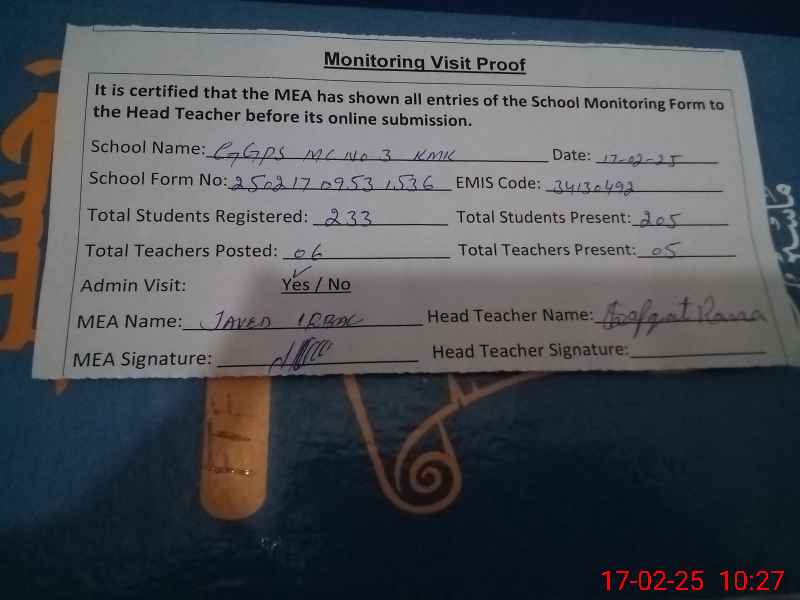 Monitoring Visit Proof
It is certified that the MEA has shown all entries of the School Monitoring Form to
the Head Teacher before its online submission.
School Name: GGPS MC No 3 KMK Date: 17-02-25
School Form No: 25021709531536 EMIS Code: 34130492
Total Students Registered: 233 Total Students Present: 205
Total Teachers Posted: 06 Total Teachers Present: 05
Admin Visit: Yes / No
MEA Name: JAVED Head Teacher Name:
MEA Signature: Head Teacher Signature:
17-02-25 10:27